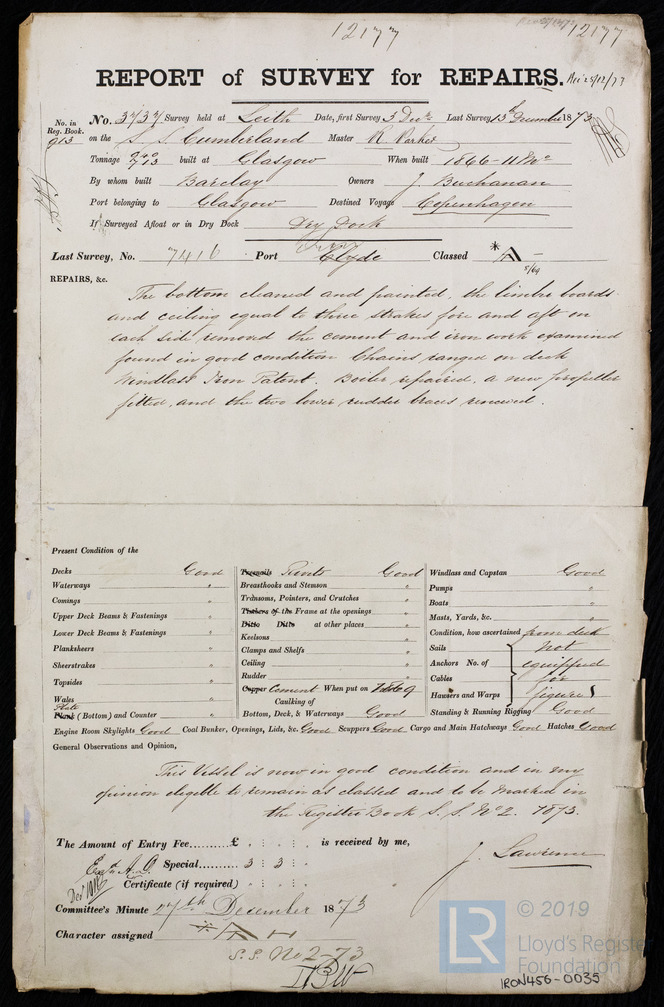 12177
12177
REPORT of SURVEY for REPAIRS. Rec 25/12/73
No. in Reg. Book. 913
No. 3737 Survey held at Leith Date, first Survey 3 Decr Last Survey 15th December 1873
on the S. S. Cumberland Master R Parker
Tonnage 713 built at Glasgow When built 1866 - 11 Mo
By whom built Barclay Owners J. Buchanan
Port belonging to Glasgow Destined Voyage Copenhagen
If Surveyed Afloat or in Dry Dock Dry Dock
Last Survey, No. 7416 Port Clyde Classed * A -
8/64
REPAIRS, &c.
The bottom cleaned and painted, the limber boards
and ceiling equal to three strakes fore and aft on
each side removed the cement and iron work examined
found in good condition Chains ranged on deck
Windlass Iron Patent. Boiler repaired, a new propeller
fitted, and the two lower rudder braces renewed.
Present Condition of the
Decks Good
Waterways "
Comings "
Upper Deck Beams & Fastenings "
Lower Deck Beams & Fastenings "
Planksheers "
Sheerstrakes "
Topsides "
Wales "
Plate
Plank (Bottom) and Counter "
Treenails Rivets Good
Breasthooks and Stemson "
Transoms, Pointers, and Crutches "
Timbers of the Frame at the openings "
Ditto Ditto at other places "
Keelsons "
Clamps and Shelfs "
Ceiling "
Rudder "
Copper Cement When put on
Caulking of
Bottom, Deck, & Waterways Good
Windlass and Capstan Good
Pumps "
Boats "
Masts, Yards, &c. "
Condition, how ascertained from deck
Sails not
Anchors No. of equipped
Cables for
Hawsers and Warps figure 1
Standing & Running Rigging Good
Engine Room Skylights Good Coal Bunker, Openings, Lids, &c. Good Scuppers Good Cargo and Main Hatchways Good Hatches Good
General Observations and Opinion,
This Vessel is now in good condition and in my
opinion eligible to remain as classed and to be marked in
the Register Book S. S. No 2. 1873.
The Amount of Entry Fee £ : : is received by me,
Special 3 : 3 :
J. Lawrence
Certificate (if required) : :
Committee's Minute 27th December 1873
Character assigned * A
S.S. No 2-73
LR © 2019
Lloyd's Register
Foundation
IRON456-0035